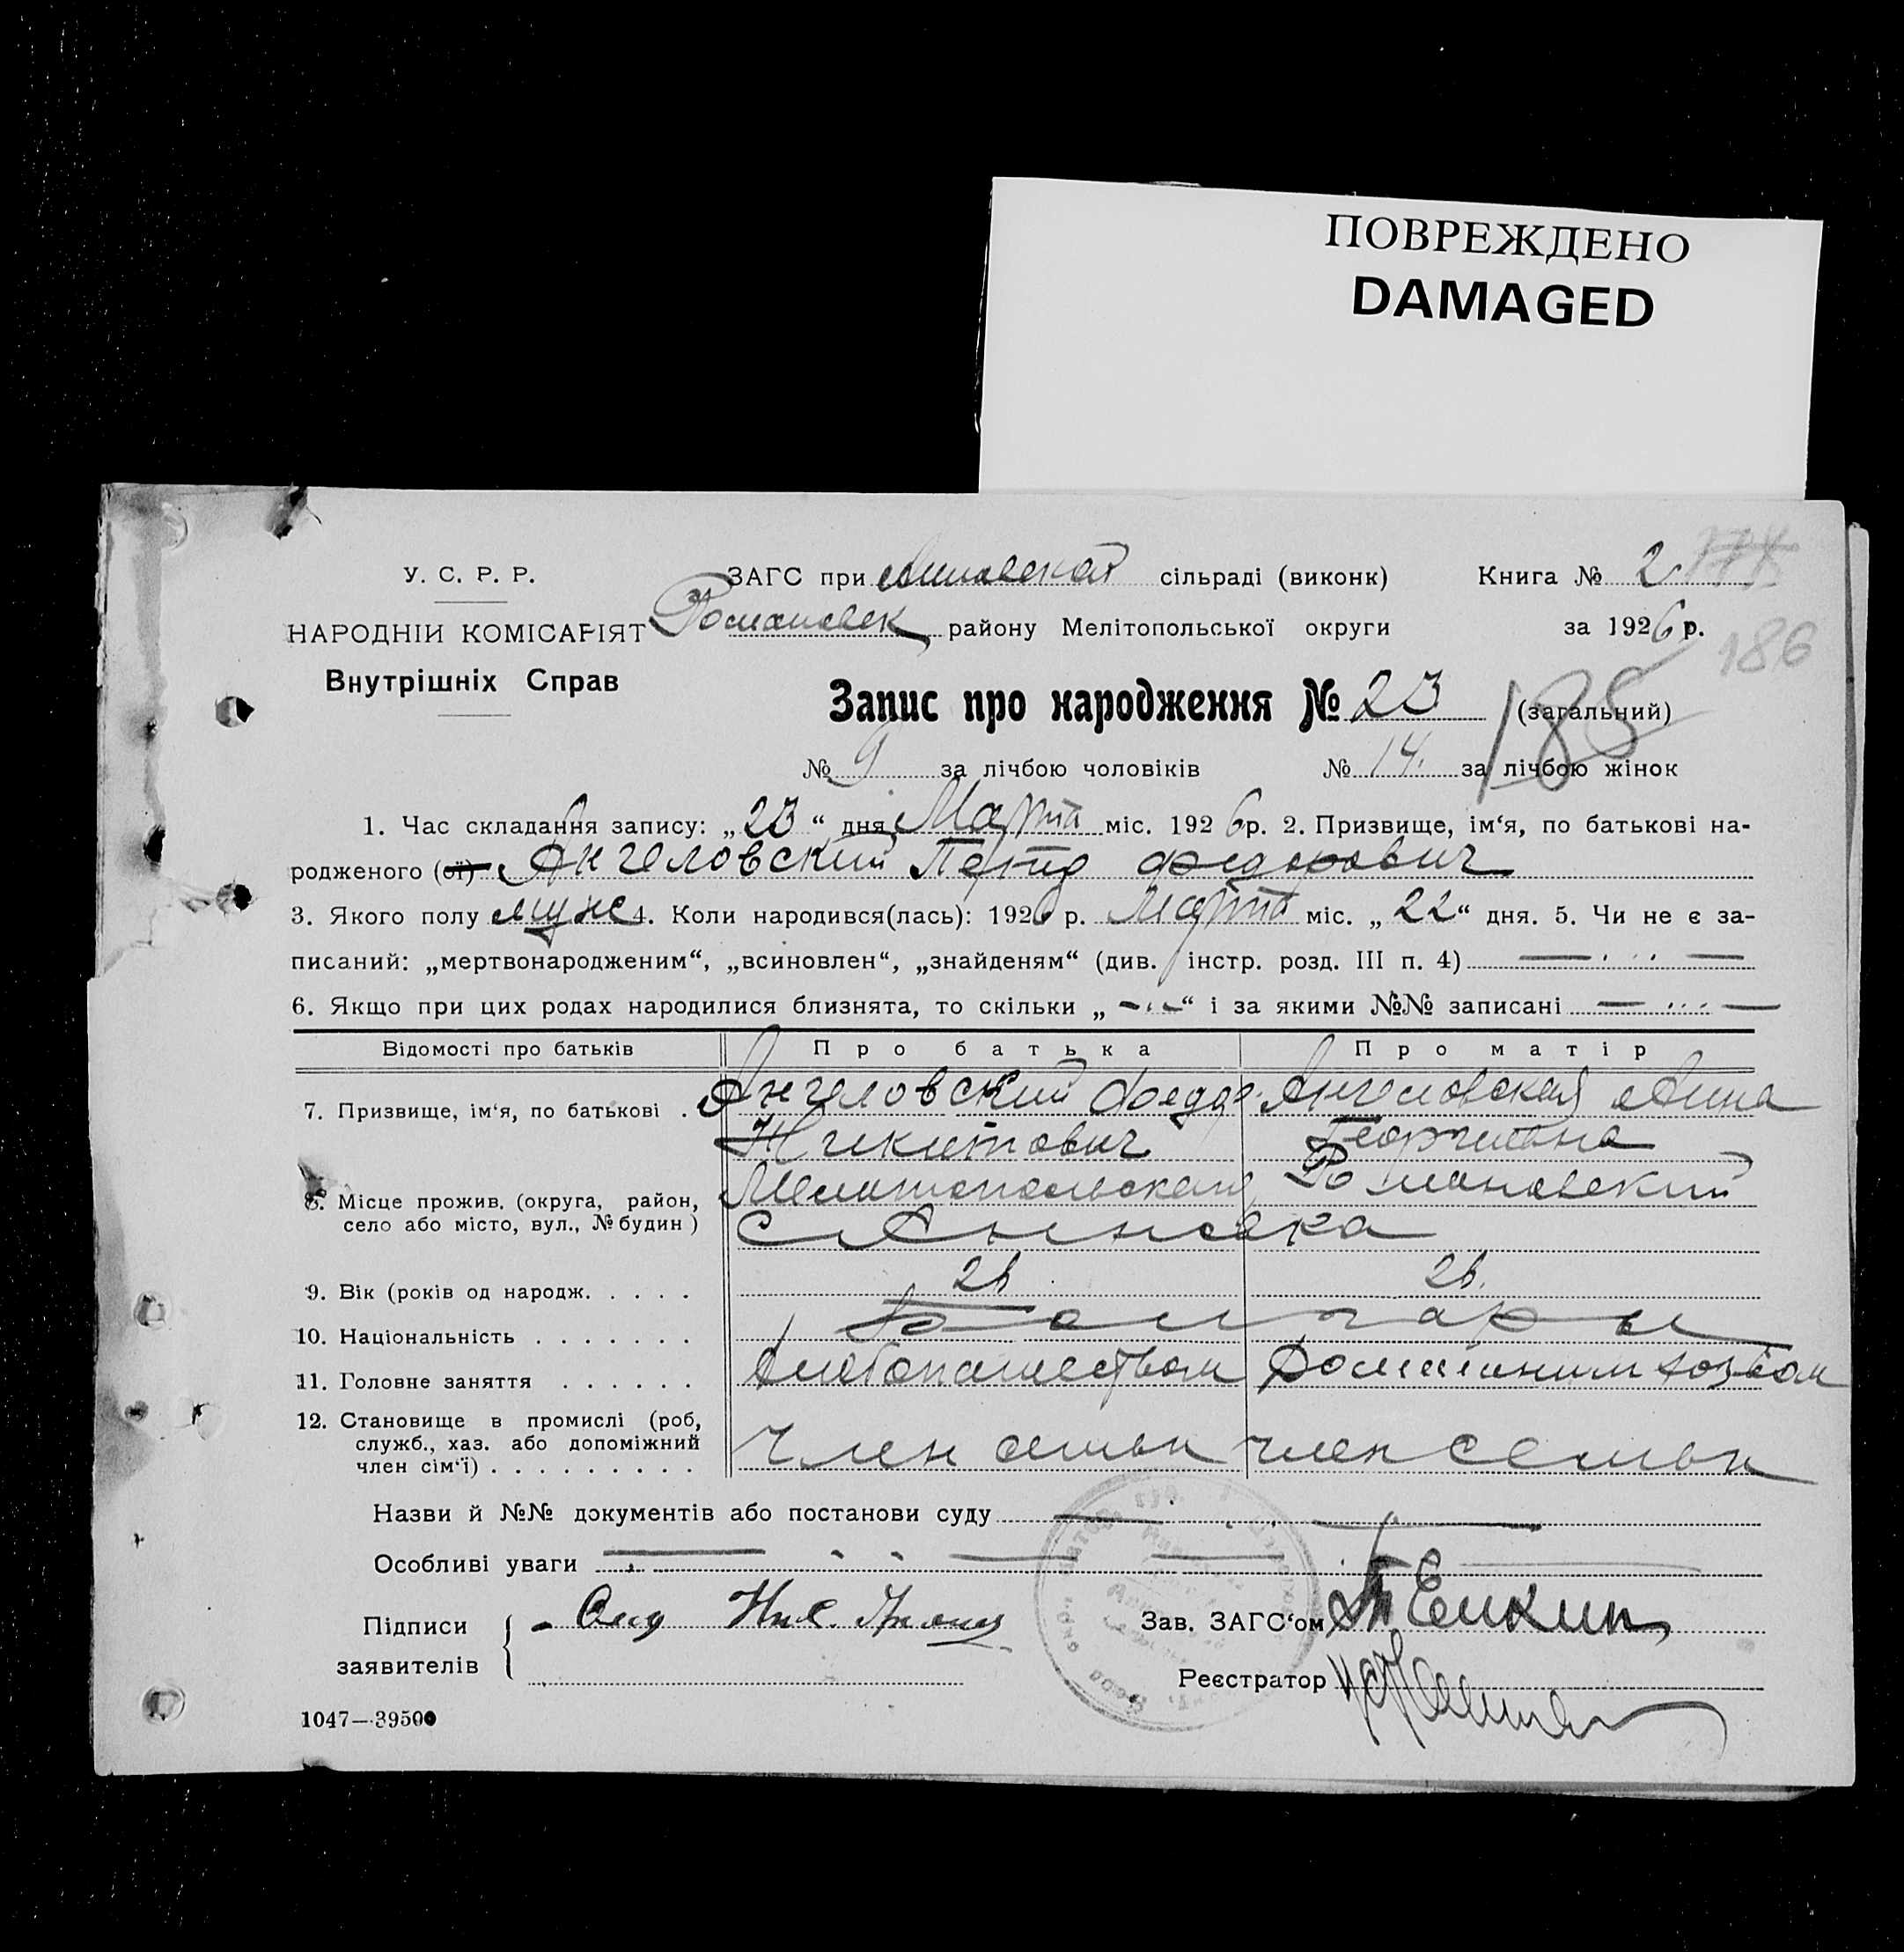 ПОВРЕЖДЕНО
DAMAGED
У. С. Р. Р.
НАРОДНІЙ КОМІСАРІЯТ
Внутрішніх Справ
ЗАГС при Анновской сільраді (виконк) Книга № 2
Романовск району Мелітопольської округи за 1926 р.
186
Запис про народження № 23 (загальний)
185
№ 9 за лічбою чоловіків № 14. за лічбою жінок
1. Час складання запису: „23“ дня Марта міс. 1926 р. 2. Призвище, ім‘я, по батькові на-
родженого (ої) Ангеловский Петр Федорович
3. Якого полу муж 4. Коли народився(лась): 1926 р. Марта міс. „22“ дня. 5. Чи не є за-
писаний: „мертвонародженим“, „всиновлен“, „знайденям“ (див. інстр. розд. III п. 4)
6. Якщо при цих родах народилися близнята, то скільки „ “ і за якими №№ записані
Відомості про батьків Про батька Про матір
7. Призвище, ім‘я, по батькові . Ангеловский Федор Ангеловская Анна
Никитович Георгиевна
8. Місце прожив. (округа, район, Мелитопольская Романовский
село або місто, вул., № будин) с Анновка
9. Вік (років од народж. . . . . 26 26.
10. Національність . . . . . . . Болгары
11. Головне заняття . . . . . . Хлебопашеством Домашним хоз-вом
12. Становище в промислі (роб, член семьи член семьи
служб., хаз. або допоміжний
член сім‘ї) . . . . . . . . .
Назви й №№ документів або постанови суду
Особливі уваги
Підписи
заявителів
Зав. ЗАГС‘ом
Реєстратор
1047—39500